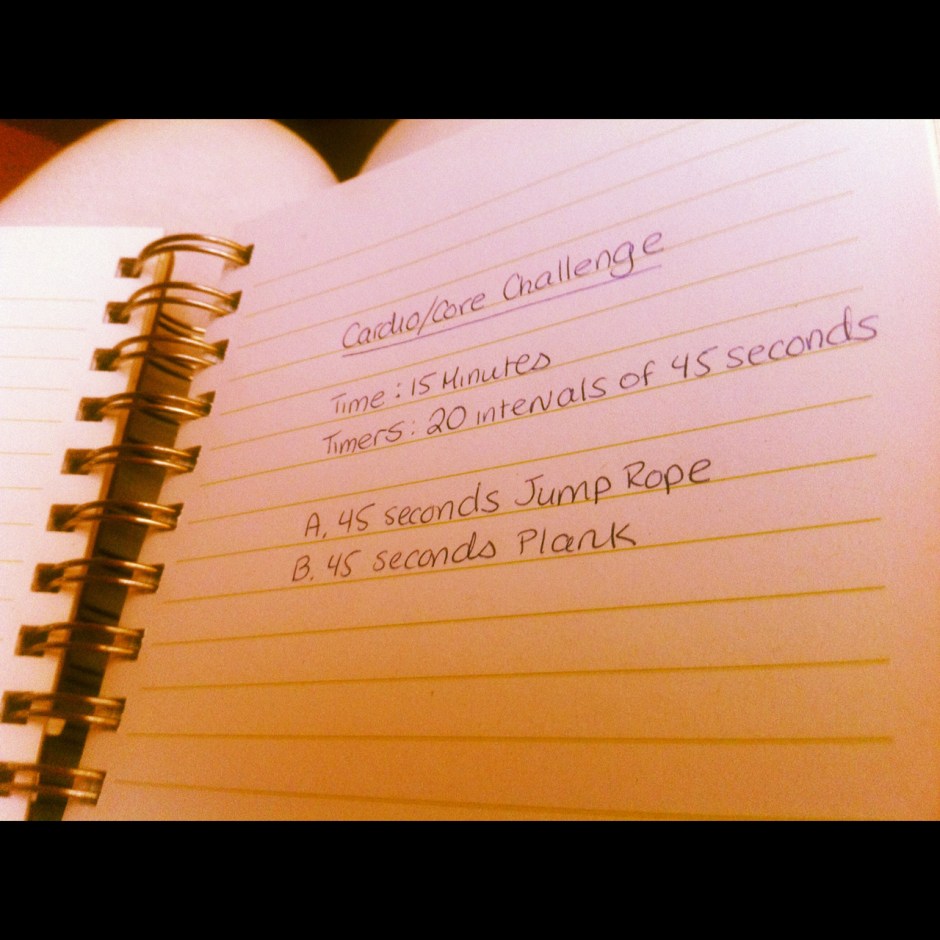 Cardio/Core Challenge
Time: 15 Minutes
Timers: 20 intervals of 45 seconds
A. 45 seconds Jump Rope
B. 45 seconds Plank